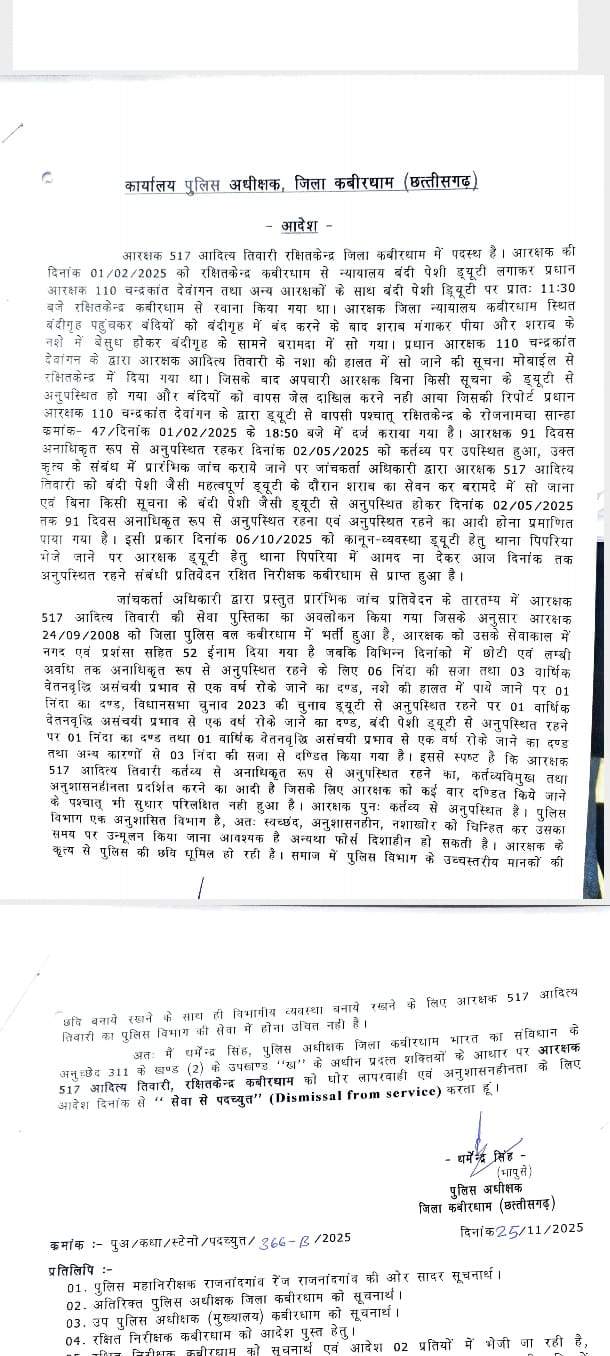 कार्यालय पुलिस अधीक्षक, जिला कबीरधाम (छत्तीसगढ़)
- आदेश -
आरक्षक 517 आदित्य तिवारी रक्षितकेन्द्र जिला कबीरधाम में पदस्थ है। आरक्षक की
दिनांक 01/02/2025 को रक्षितकेन्द्र कबीरधाम से न्यायालय बंदी पेशी ड्यूटी लगाकर प्रधान
आरक्षक 110 चन्द्रकांत देवांगन तथा अन्य आरक्षकों के साथ बंदी पेशी डि्यूटी पर प्रातः 11:30
बजे रक्षितकेन्द्र कबीरधाम से रवाना किया गया था। आरक्षक जिला न्यायालय कबीरधाम स्थित
बंदीगृह पहुंचकर बंदियों को बंदीगृह में बंद करने के बाद शराब मंगाकर पीया और शराब के
नशे में बेसुध होकर बंदीगृह के सामने बरामदा में सो गया। प्रधान आरक्षक 110 चन्द्रकांत
देवांगन के द्वारा आरक्षक आदित्य तिवारी के नशा की हालत में सो जाने की सूचना मोबाईल से
रक्षितकेन्द्र में दिया गया था। जिसके बाद अपचारी आरक्षक बिना किसी सूचना के ड्यूटी से
अनुपस्थित हो गया और बंदियों को वापस जेल दाखिल करने नही आया जिसकी रिपोर्ट प्रधान
आरक्षक 110 चन्द्रकांत देवांगन के द्वारा ड्यूटी से वापसी पश्चात् रक्षितकेन्द्र के रोजनामचा सान्हा
कमांक- 47/दिनांक 01/02/2025 के 18:50 बजे में दर्ज कराया गया है। आरक्षक 91 दिवस
अनाधिकृत रूप से अनुपस्थित रहकर दिनांक 02/05/2025 को कर्तव्य पर उपस्थित हुआ, उक्त
कृत्य के संबंध में प्रारंभिक जांच कराये जाने पर जांचकर्ता अधिकारी द्वारा आरक्षक 517 आदित्य
तिवारी को बंदी पेशी जैसी महत्वपूर्ण ड्यूटी के दौरान शराब का सेवन कर बरामदे में सो जाना
एवं बिना किसी सूचना के बंदी पेशी जैसी ड्यूटी से अनुपस्थित होकर दिनांक 02/05/2025
तक 91 दिवस अनाधिकृत रूप से अनुपस्थित रहना एवं अनुपस्थित रहने का आदी होना प्रमाणित
पाया गया है। इसी प्रकार दिनांक 06/10/2025 को कानून-व्यवस्था ड्यूटी हेतु थाना पिपरिया
भेजे जाने पर आरक्षक ड्यूटी हेतु थाना पिपरिया में आमद ना देकर आज दिनांक तक
अनुपस्थित रहने संबंधी प्रतिवेदन रक्षित निरीक्षक कबीरधाम से प्राप्त हुआ है।
जांचकर्ता अधिकारी द्वारा प्रस्तुत प्रारंभिक जांच प्रतिवेदन के तारतम्य में आरक्षक
517 आदित्य तिवारी की सेवा पुस्तिका का अवलोकन किया गया जिसके अनुसार आरक्षक
24/09/2008 को जिला पुलिस बल कबीरधाम में भर्ती हुआ है, आरक्षक को उसके सेवाकाल में
नगद एवं प्रशंसा सहित 52 ईनाम दिया गया है जबकि विभिन्न दिनांको में छोटी एवं लम्बी
अवधि तक अनाधिकृत रूप से अनुपस्थित रहने के लिए 06 निंदा की सजा तथा 03 वार्षिक
वेतनवृद्धि असंचयी प्रभाव से एक वर्ष रोके जाने का दण्ड, नशे की हालत में पाये जाने पर 01
निंदा का दण्ड, विधानसभा चुनाव 2023 की चुनाव ड्यूटी से अनुपस्थित रहने पर 01 वार्षिक
वेतनवृद्धि असंचयी प्रभाव से एक वर्ष रोके जाने का दण्ड, बंदी पेशी ड्यूटी से अनुपस्थित रहने
पर 01 निंदा का दण्ड तथा 01 वार्षिक वेतनवृद्धि असंचयी प्रभाव से एक वर्ष रोके जाने का दण्ड
तथा अन्य कारणों से 03 निंदा की सजा से दण्डित किया गया है। इससे स्पष्ट है कि आरक्षक
517 आदित्य तिवारी कर्तव्य से अनाधिकृत रूप से अनुपस्थित रहने का, कर्तव्यविमुख तथा
अनुशासनहीनता प्रदर्शित करने का आदी है जिसके लिए आरक्षक को कई बार दण्डित किये जाने
के पश्चात् भी सुधार परिलक्षित नही हुआ है। आरक्षक पुनः कर्तव्य से अनुपस्थित है। पुलिस
विभाग एक अनुशासित विभाग है, अतः स्वच्छंद, अनुशासनहीन, नशाखोर को चिन्हित कर उसका
समय पर उन्मूलन किया जाना आवश्यक है अन्यथा फोर्स दिशाहीन हो सकती है। आरक्षक के
कृत्य से पुलिस की छवि धूमिल हो रही है। समाज में पुलिस विभाग के उच्चस्तरीय मानकों की
छवि बनाये रखने के साथ ही विभागीय व्यवस्था बनाये रखने के लिए आरक्षक 517 आदित्य
तिवारी का पुलिस विभाग की सेवा में होना उचित नही है।
अतः मैं धर्मेन्द्र सिंह, पुलिस अधीक्षक जिला कबीरधाम भारत का संविधान के
अनुच्छेद 311 के खण्ड (2) के उपखण्ड "ख" के अधीन प्रदत्त शक्तियों के आधार पर आरक्षक
517 आदित्य तिवारी, रक्षितकेन्द्र कबीरधाम को घोर लापरवाही एवं अनुशासनहीनता के लिए
आदेश दिनांक से " सेवा से पदच्युत" (Dismissal from service) करता हूं।
- धर्मेन्द्र सिंह -
(भापुसे)
पुलिस अधीक्षक
जिला कबीरधाम (छत्तीसगढ़)
दिनांक 25/11/2025
कमांक :- पुअ/कधा/स्टेनो/पदच्युत/ 366-B /2025
प्रतिलिपि :-
01. पुलिस महानिरीक्षक राजनांदगांव रेंज राजनांदगांव की ओर सादर सूचनार्थ।
02. अतिरिक्त पुलिस अधीक्षक जिला कबीरधाम को सूचनार्थ।
03. उप पुलिस अधीक्षक (मुख्यालय) कबीरधाम को सूचनार्थ।
04. रक्षित निरीक्षक कबीरधाम को आदेश पुस्त हेतु।
रक्षित निरीक्षक कबीरधाम को सूचनार्थ एवं आदेश 02 प्रतियों में भेजी जा रही है,